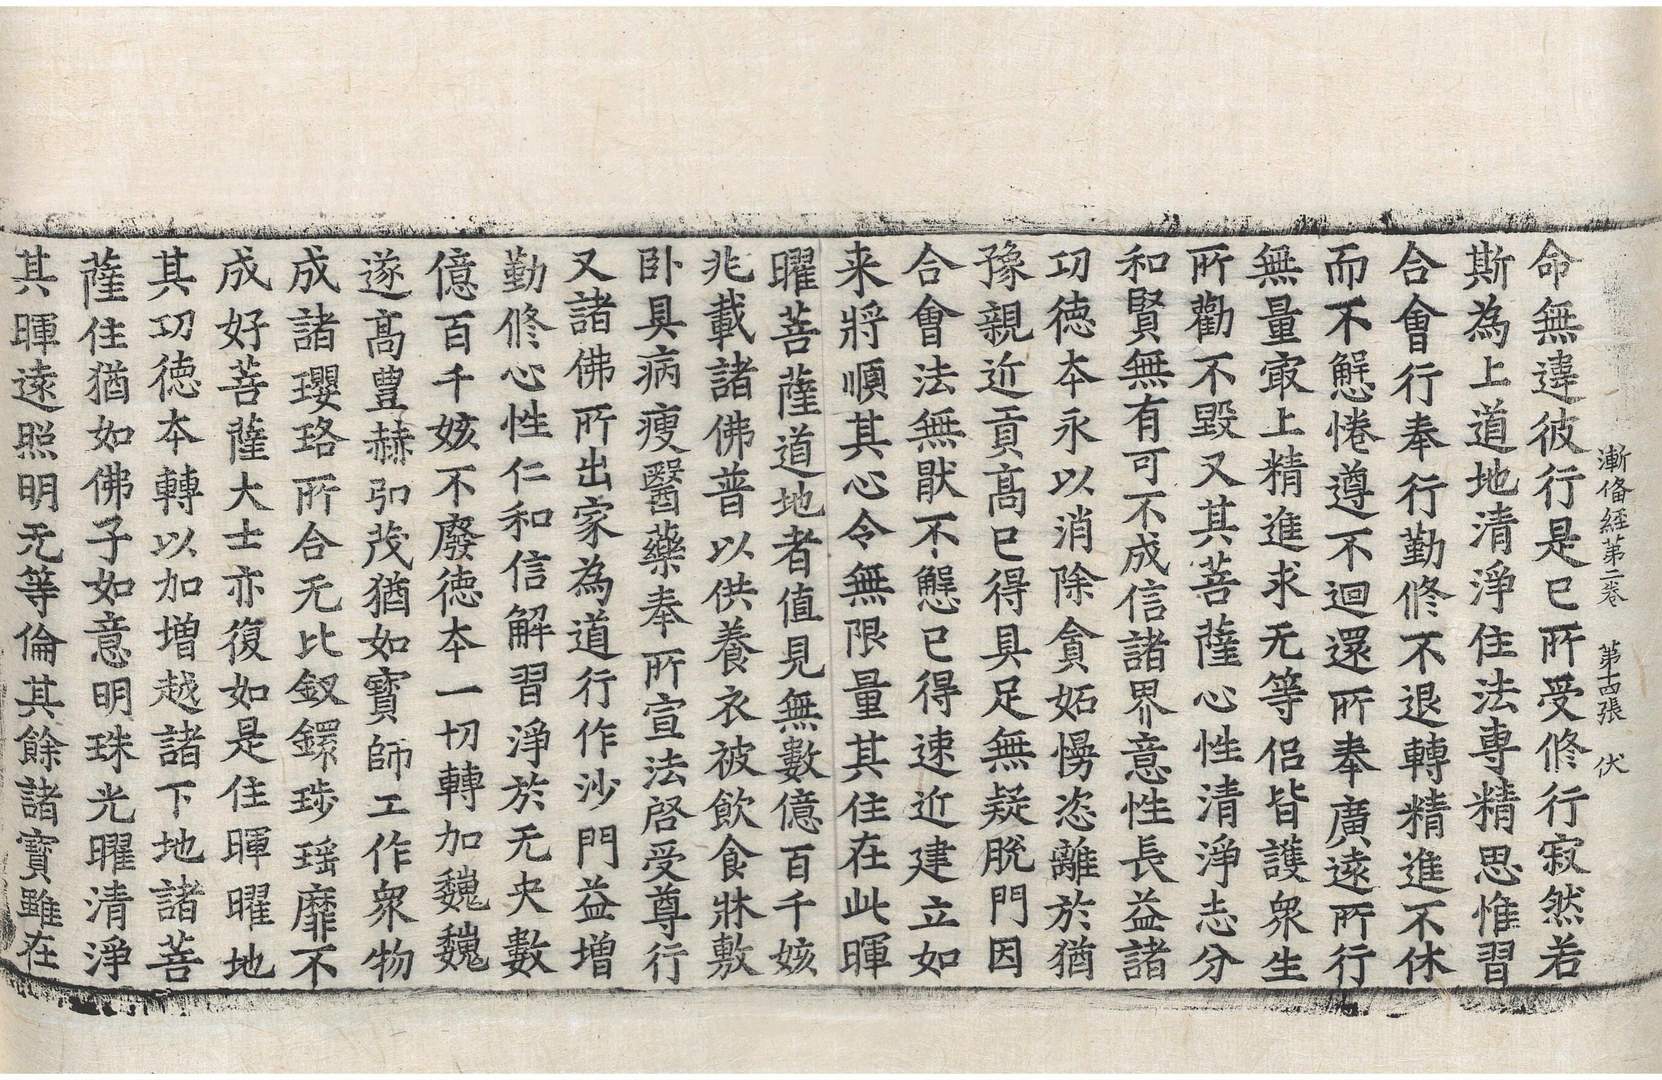 漸俻経第二卷　第十四張　伏
命無違彼行是已所受修行寂然若
斯為上道地清淨住法專精思惟習
合會行奉行勤修不退轉精進不休
而不懈惓遵不迴還所奉廣遠所行
無量㝡上精進求无等侶皆護衆生
所勸不毀又其菩薩心性清淨志分
和賢無有可不成信諸界意性長益諸
功徳夲永以消除貪妬慢恣離於猶
豫親近貢髙已得具足無疑脫門因
合會法無猒不懈已得速近建立如
来將順其心令無限量其住在此暉
曜菩薩道地者值見無數億百千姟
兆載諸佛普以供養衣被飲食牀敷
卧具病瘦醫藥奉所宣法啓受尊行
又諸佛所出家為道行作沙門益増
勤修心性仁和信解習淨於无央數
億百千姟不廢徳夲一切轉加巍巍
遂髙豊赫弘茂猶如寶師工作衆物
成諸瓔珞所合无比釵鐶琦瑶靡不
成好菩薩大士亦復如是住暉曜地
其功徳夲轉以加増越諸下地諸菩
薩住猶如佛子如意明珠光曜清淨
其暉遠照明无等倫其餘諸寶雖在